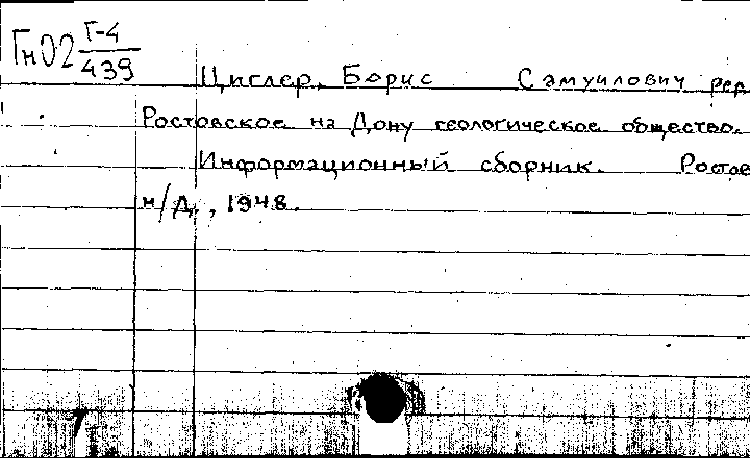 Гн02 Г-4
439
Циглер, Борис Самуилович ред
Ростовское на Дону геологическое общество.
Информационный сборник. Ростов
н/Д, 1948.